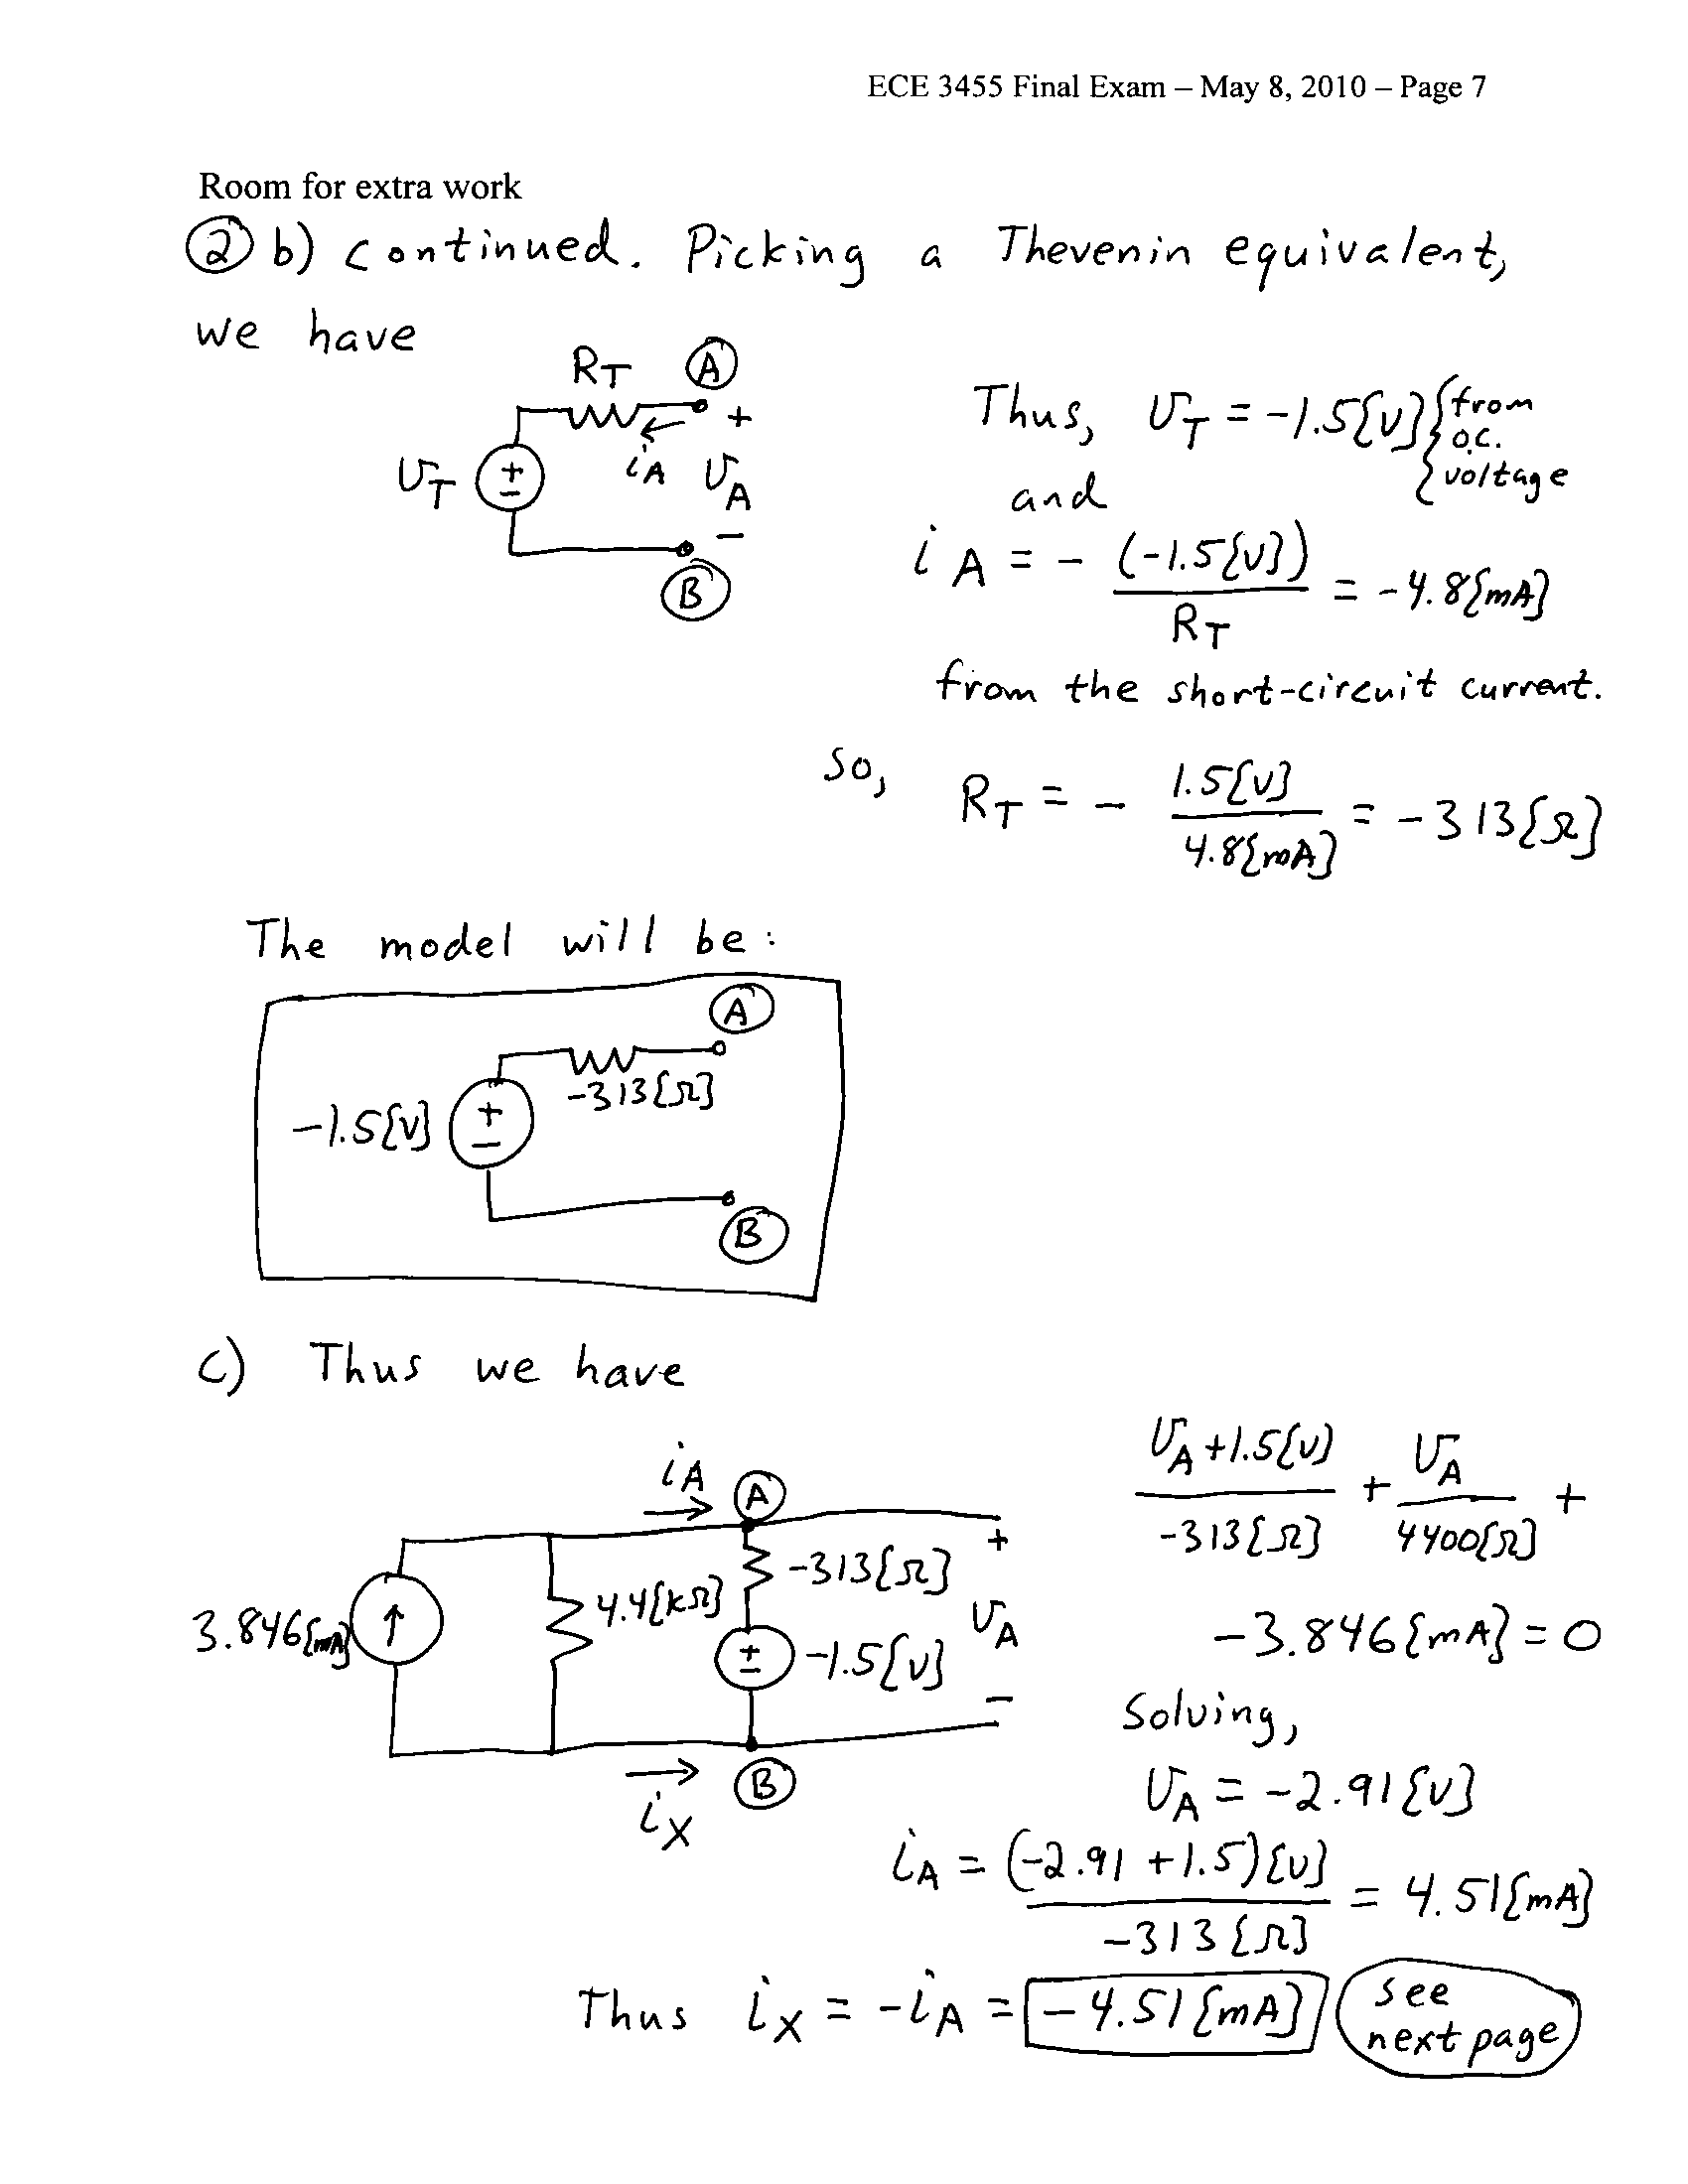 ECE 3455 Final Exam – May 8, 2010 – Page 7
Room for extra work
② b) continued. Picking a Thevenin equivalent,
we have
R_T Ⓐ
+
v_T + − i_A v_A
−
Ⓑ
Thus, v_T = -1.5{V} {from o.c. voltage
and
i_A = - (-1.5{V}) / R_T = -4.8{mA}
from the short-circuit current.
So, R_T = - 1.5{V} / 4.8{mA} = -313{Ω}
The model will be:
Ⓐ
-313{Ω}
-1.5{V} + −
Ⓑ
c) Thus we have
i_A Ⓐ
+
-313{Ω}
3.846{mA} ↑ 4.4{kΩ} v_A
+ − -1.5{V}
−
i_X Ⓑ
(v_A + 1.5{V}) / -313{Ω} + v_A / 4400{Ω} +
-3.846{mA} = 0
Solving,
v_A = -2.91{V}
i_A = (-2.91 + 1.5){V} / -313{Ω} = 4.51{mA}
Thus i_X = -i_A = -4.51{mA}
see
next page